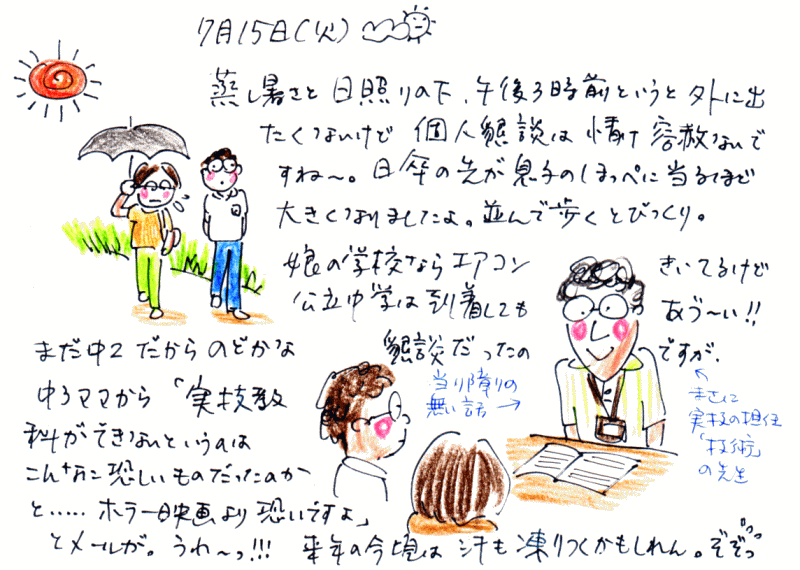 7月15日(火)
蒸し暑さと日照りの下、午後3時前というと外に出
たくないけど 個人懇談は情け容赦ないで
すね〜。日傘の先が息子のほっぺに当るほど
大きくなりましたよ。並んで歩くとびっくり。
娘の学校ならエアコン きいてるけど
公立中学は到着しても あづ〜い!!
まだ中2だからのどかな 懇談だったの ですが、
中3ママから「実技教
科ができないというのは
こんなに恐しいものだったのか
と……ホラー映画より恐いですよ」
とメールが。うわ〜っ!!! 来年の今頃は 汗も凍りつくかもしれん。ぞぞっ
当り障りの
無い話 →
まさに
実技の担任
「技術」
の先生